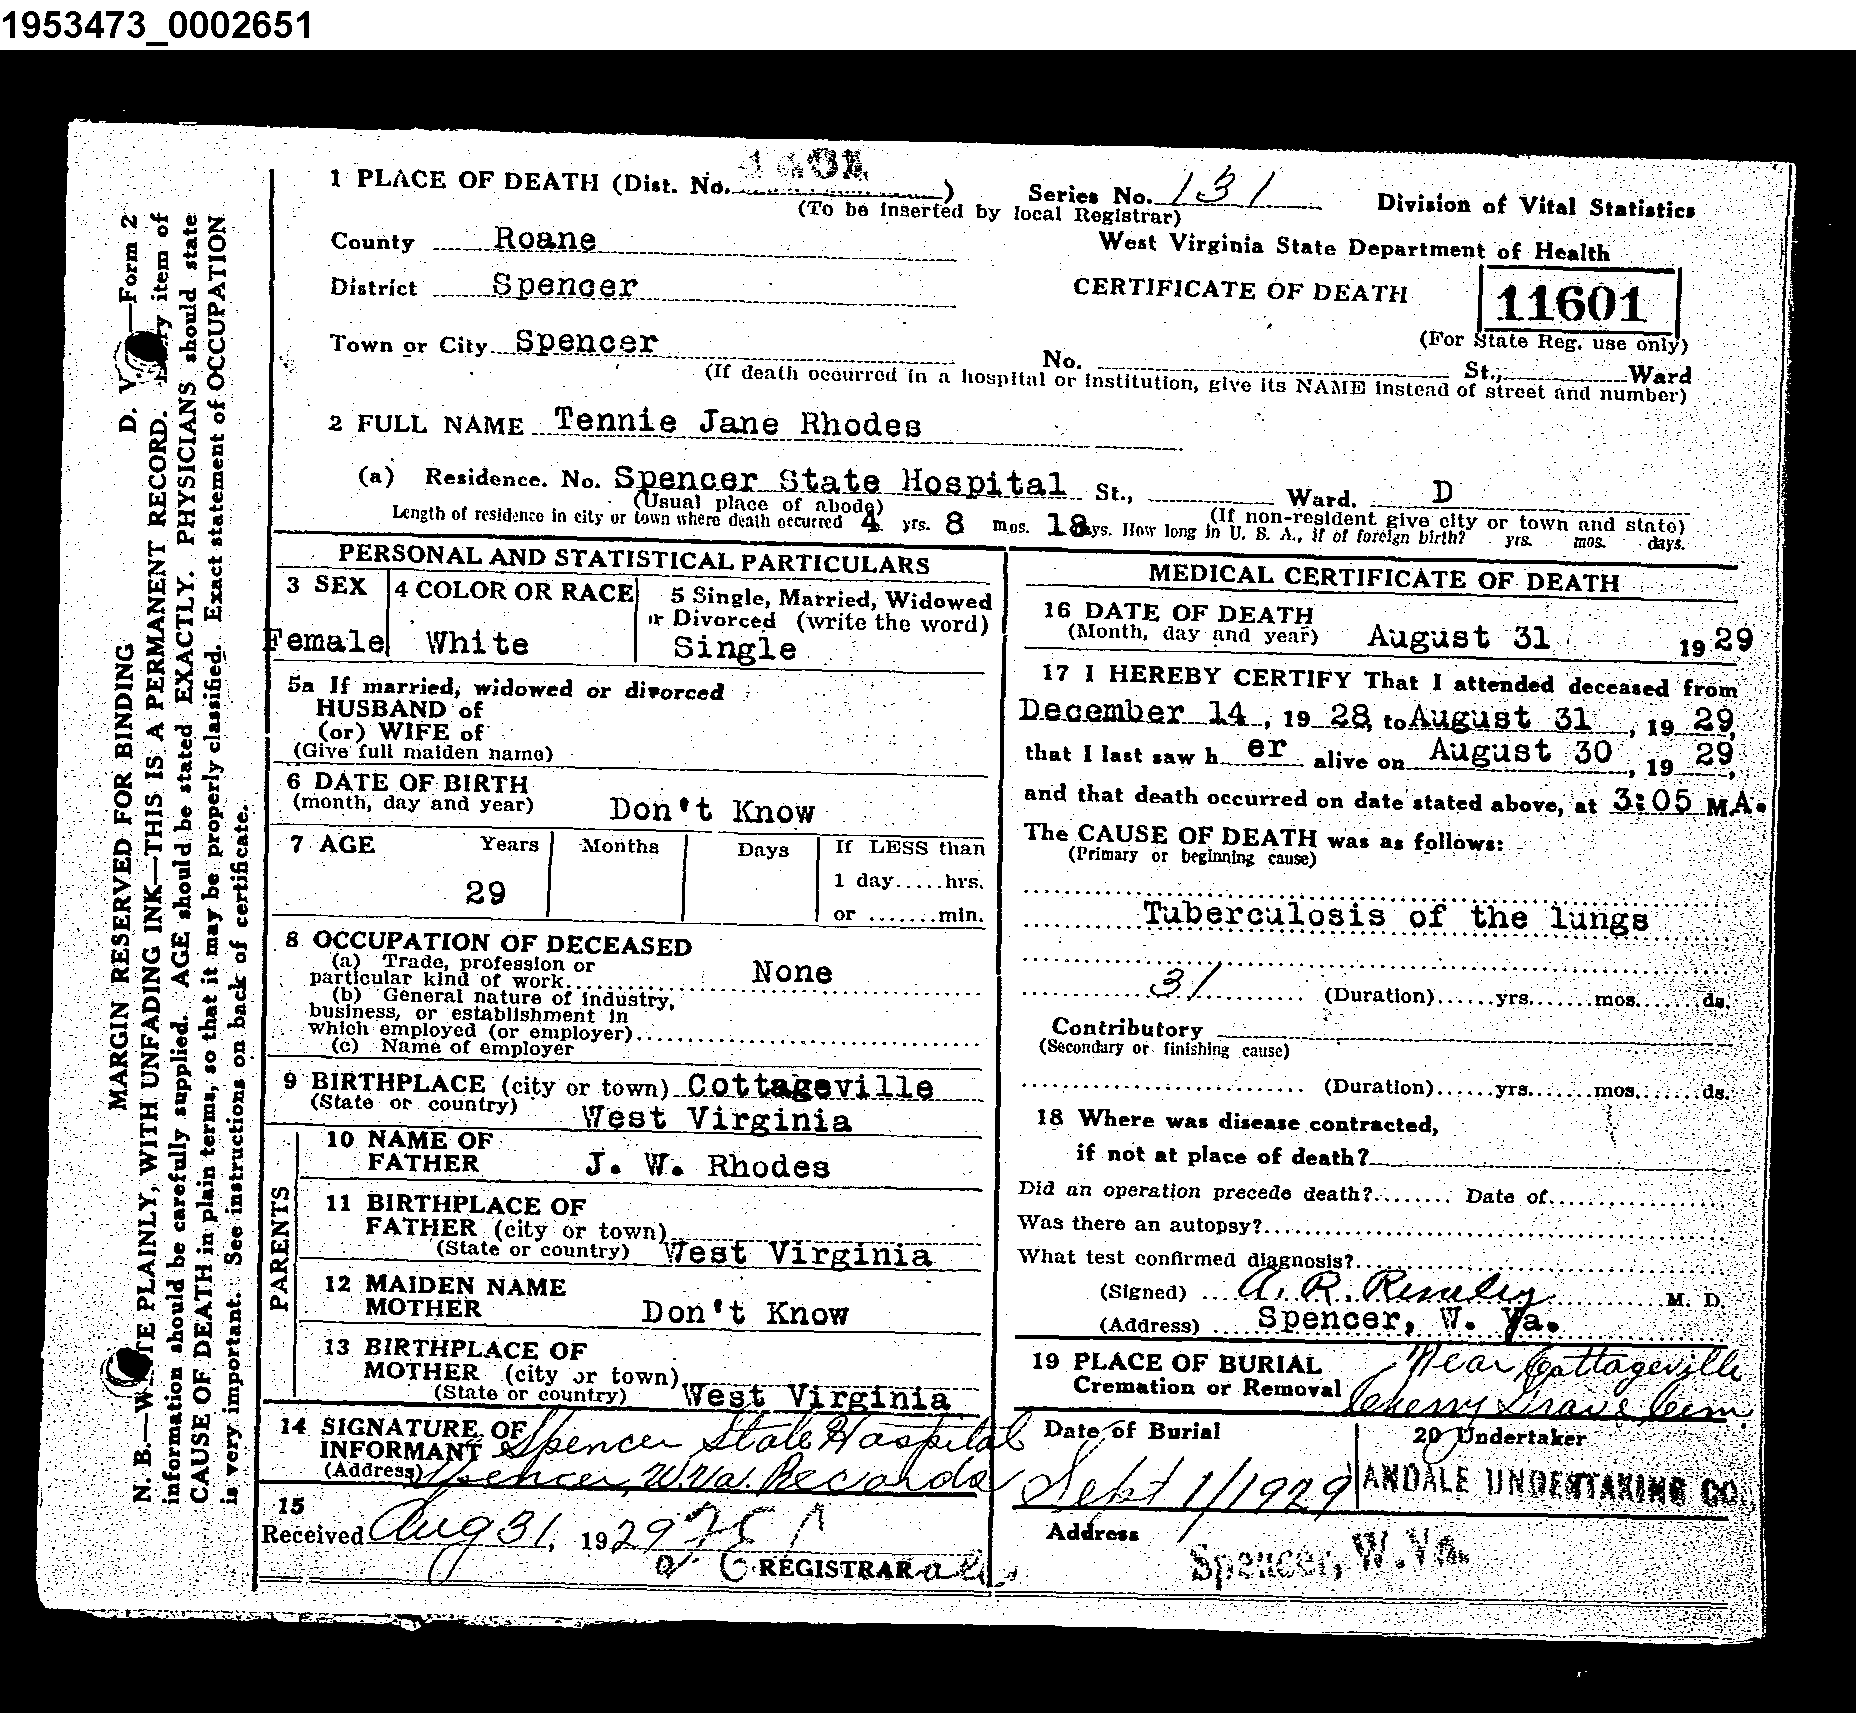 1953473_0002651
1 PLACE OF DEATH (Dist. No. ) Series No. 131 Division of Vital Statistics
(To be inserted by local Registrar)
County Roane West Virginia State Department of Health
District Spencer CERTIFICATE OF DEATH 11601
(For State Reg. use only)
Town or City Spencer No. St., Ward
(If death occurred in a hospital or institution, give its NAME instead of street and number)
2 FULL NAME Tennie Jane Rhodes
(a) Residence. No. Spencer State Hospital St., Ward. D
(Usual place of abode) (If non-resident give city or town and state)
Length of residence in city or town where death occurred 4 yrs. 8 mos. 18 ays. How long in U. S. A., if of foreign birth? yrs. mos. days.
PERSONAL AND STATISTICAL PARTICULARS
3 SEX 4 COLOR OR RACE 5 Single, Married, Widowed
or Divorced (write the word)
Female White Single
5a If married, widowed or divorced
HUSBAND of
(or) WIFE of
(Give full maiden name)
6 DATE OF BIRTH
(month, day and year) Don't Know
7 AGE Years Months Days If LESS than
1 day.....hrs.
29 or .......min.
8 OCCUPATION OF DECEASED
(a) Trade, profession or
particular kind of work None
(b) General nature of industry,
business, or establishment in
which employed (or employer)
(c) Name of employer
9 BIRTHPLACE (city or town) Cottageville
(State or country) West Virginia
PARENTS
10 NAME OF
FATHER J. W. Rhodes
11 BIRTHPLACE OF
FATHER (city or town)
(State or country) West Virginia
12 MAIDEN NAME
MOTHER Don't Know
13 BIRTHPLACE OF
MOTHER (city or town)
(State or country) West Virginia
14 SIGNATURE OF
INFORMANT Spencer State Hospital
(Address) Spencer, W.Va. Records
15
Received Aug 31, 1929
REGISTRAR
MEDICAL CERTIFICATE OF DEATH
16 DATE OF DEATH
(Month, day and year) August 31 1929
17 I HEREBY CERTIFY That I attended deceased from
December 14, 1928, to August 31, 1929,
that I last saw her alive on August 30, 1929,
and that death occurred on date stated above, at 3:05 M A.
The CAUSE OF DEATH was as follows:
(Primary or beginning cause)
Tuberculosis of the lungs
31 (Duration)......yrs.......mos.......ds.
Contributory
(Secondary or finishing cause)
(Duration)......yrs.......mos.......ds.
18 Where was disease contracted,
if not at place of death?
Did an operation precede death?........ Date of
Was there an autopsy?
What test confirmed diagnosis?
(Signed) A. R. M. D.
(Address) Spencer, W. Va.
19 PLACE OF BURIAL Near Cottageville
Cremation or Removal Cem
Date of Burial 20 Undertaker
Sept 1/1929 ANDALE UNDERTAKING CO.
Address
Spencer, W.Va.
D. V. —Form 2
MARGIN RESERVED FOR BINDING
N. B.—W TE PLAINLY, WITH UNFADING INK—THIS IS A PERMANENT RECORD. ry item of
information should be carefully supplied. AGE should be stated EXACTLY. PHYSICIANS should state
CAUSE OF DEATH in plain terms, so that it may be properly classified. Exact statement of OCCUPATION
is very important. See instructions on back of certificate.